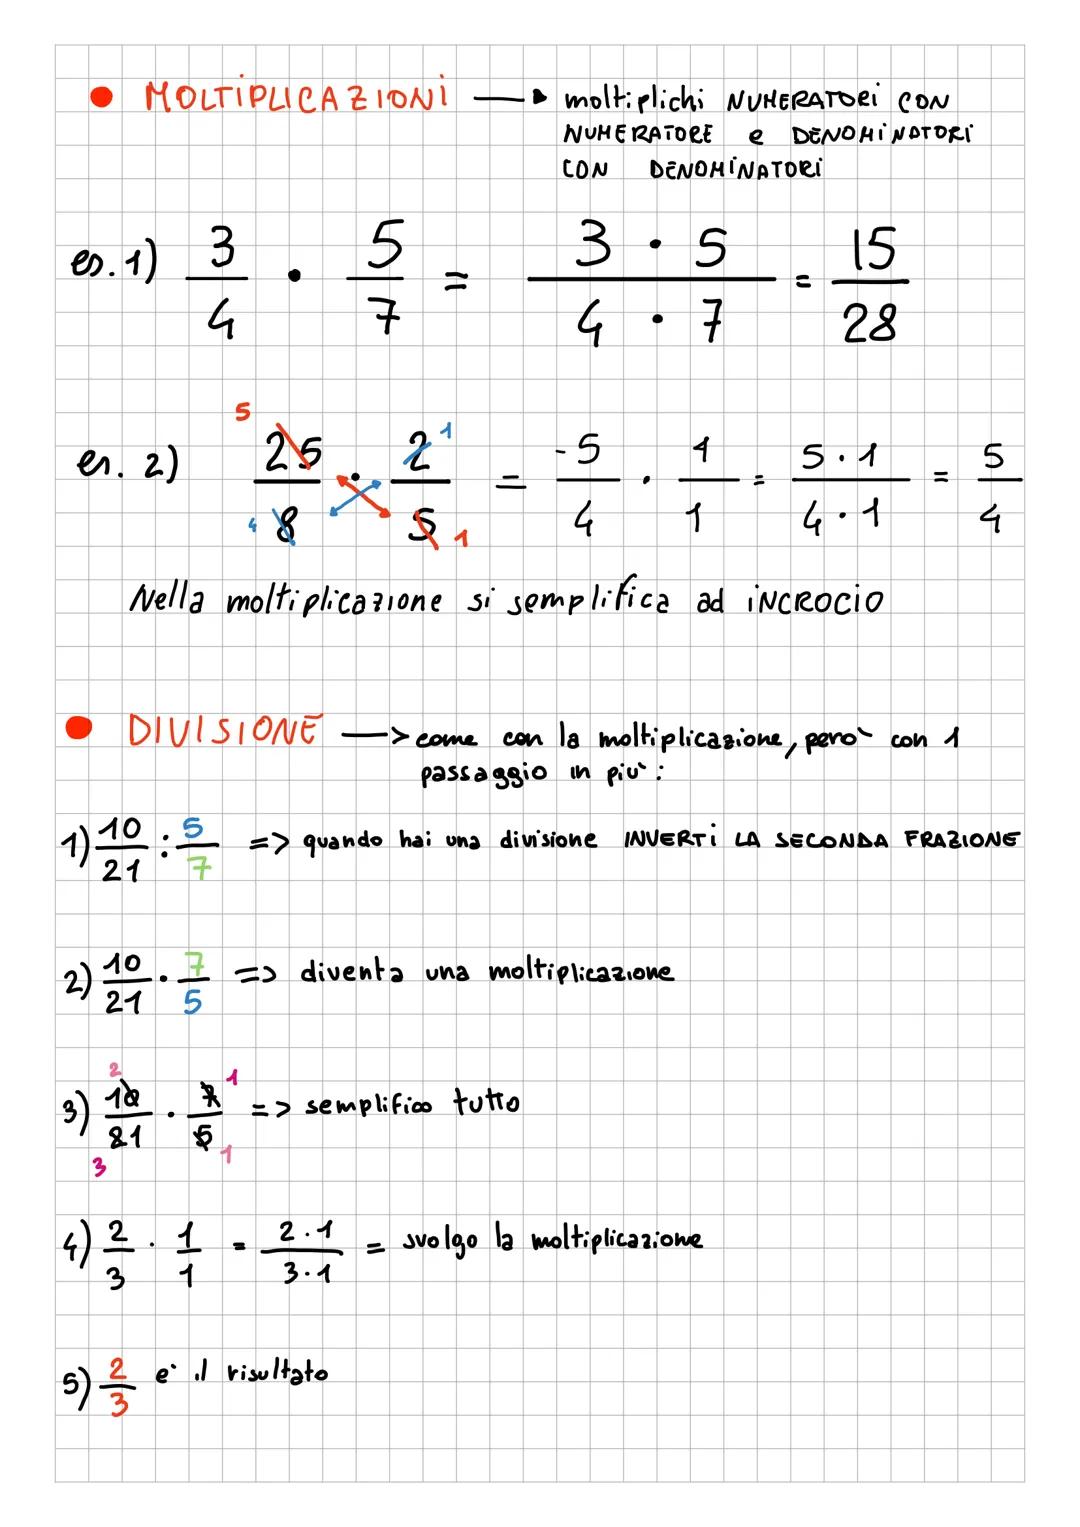 • MOLTIPLICAZIONI → moltiplichi NUMERATORI CON
NUMERATORE e DENOMINATORI
CON DENOMINATORI
es. 1) 3/4 · 5/7 = 3 · 5 / 4 · 7 = 15/28
5 1
es. 2) 25/8 · 2/5 = -5/4 · 1/1 = 5 · 1 / 4 · 1 = 5/4
4 1
Nella moltiplicazione si semplifica ad INCROCIO
• DIVISIONE —> come con la moltiplicazione, però con 1
passaggio in più:
1) 10/21 : 5/7 => quando hai una divisione INVERTI LA SECONDA FRAZIONE
2) 10/21 · 7/5 => diventa una moltiplicazione
2 1
3) 10/21 · 7/5 => semplifico tutto
3 1
4) 2/3 · 1/1 = 2 · 1 / 3 · 1 = svolgo la moltiplicazione
5) 2/3 e' il risultato